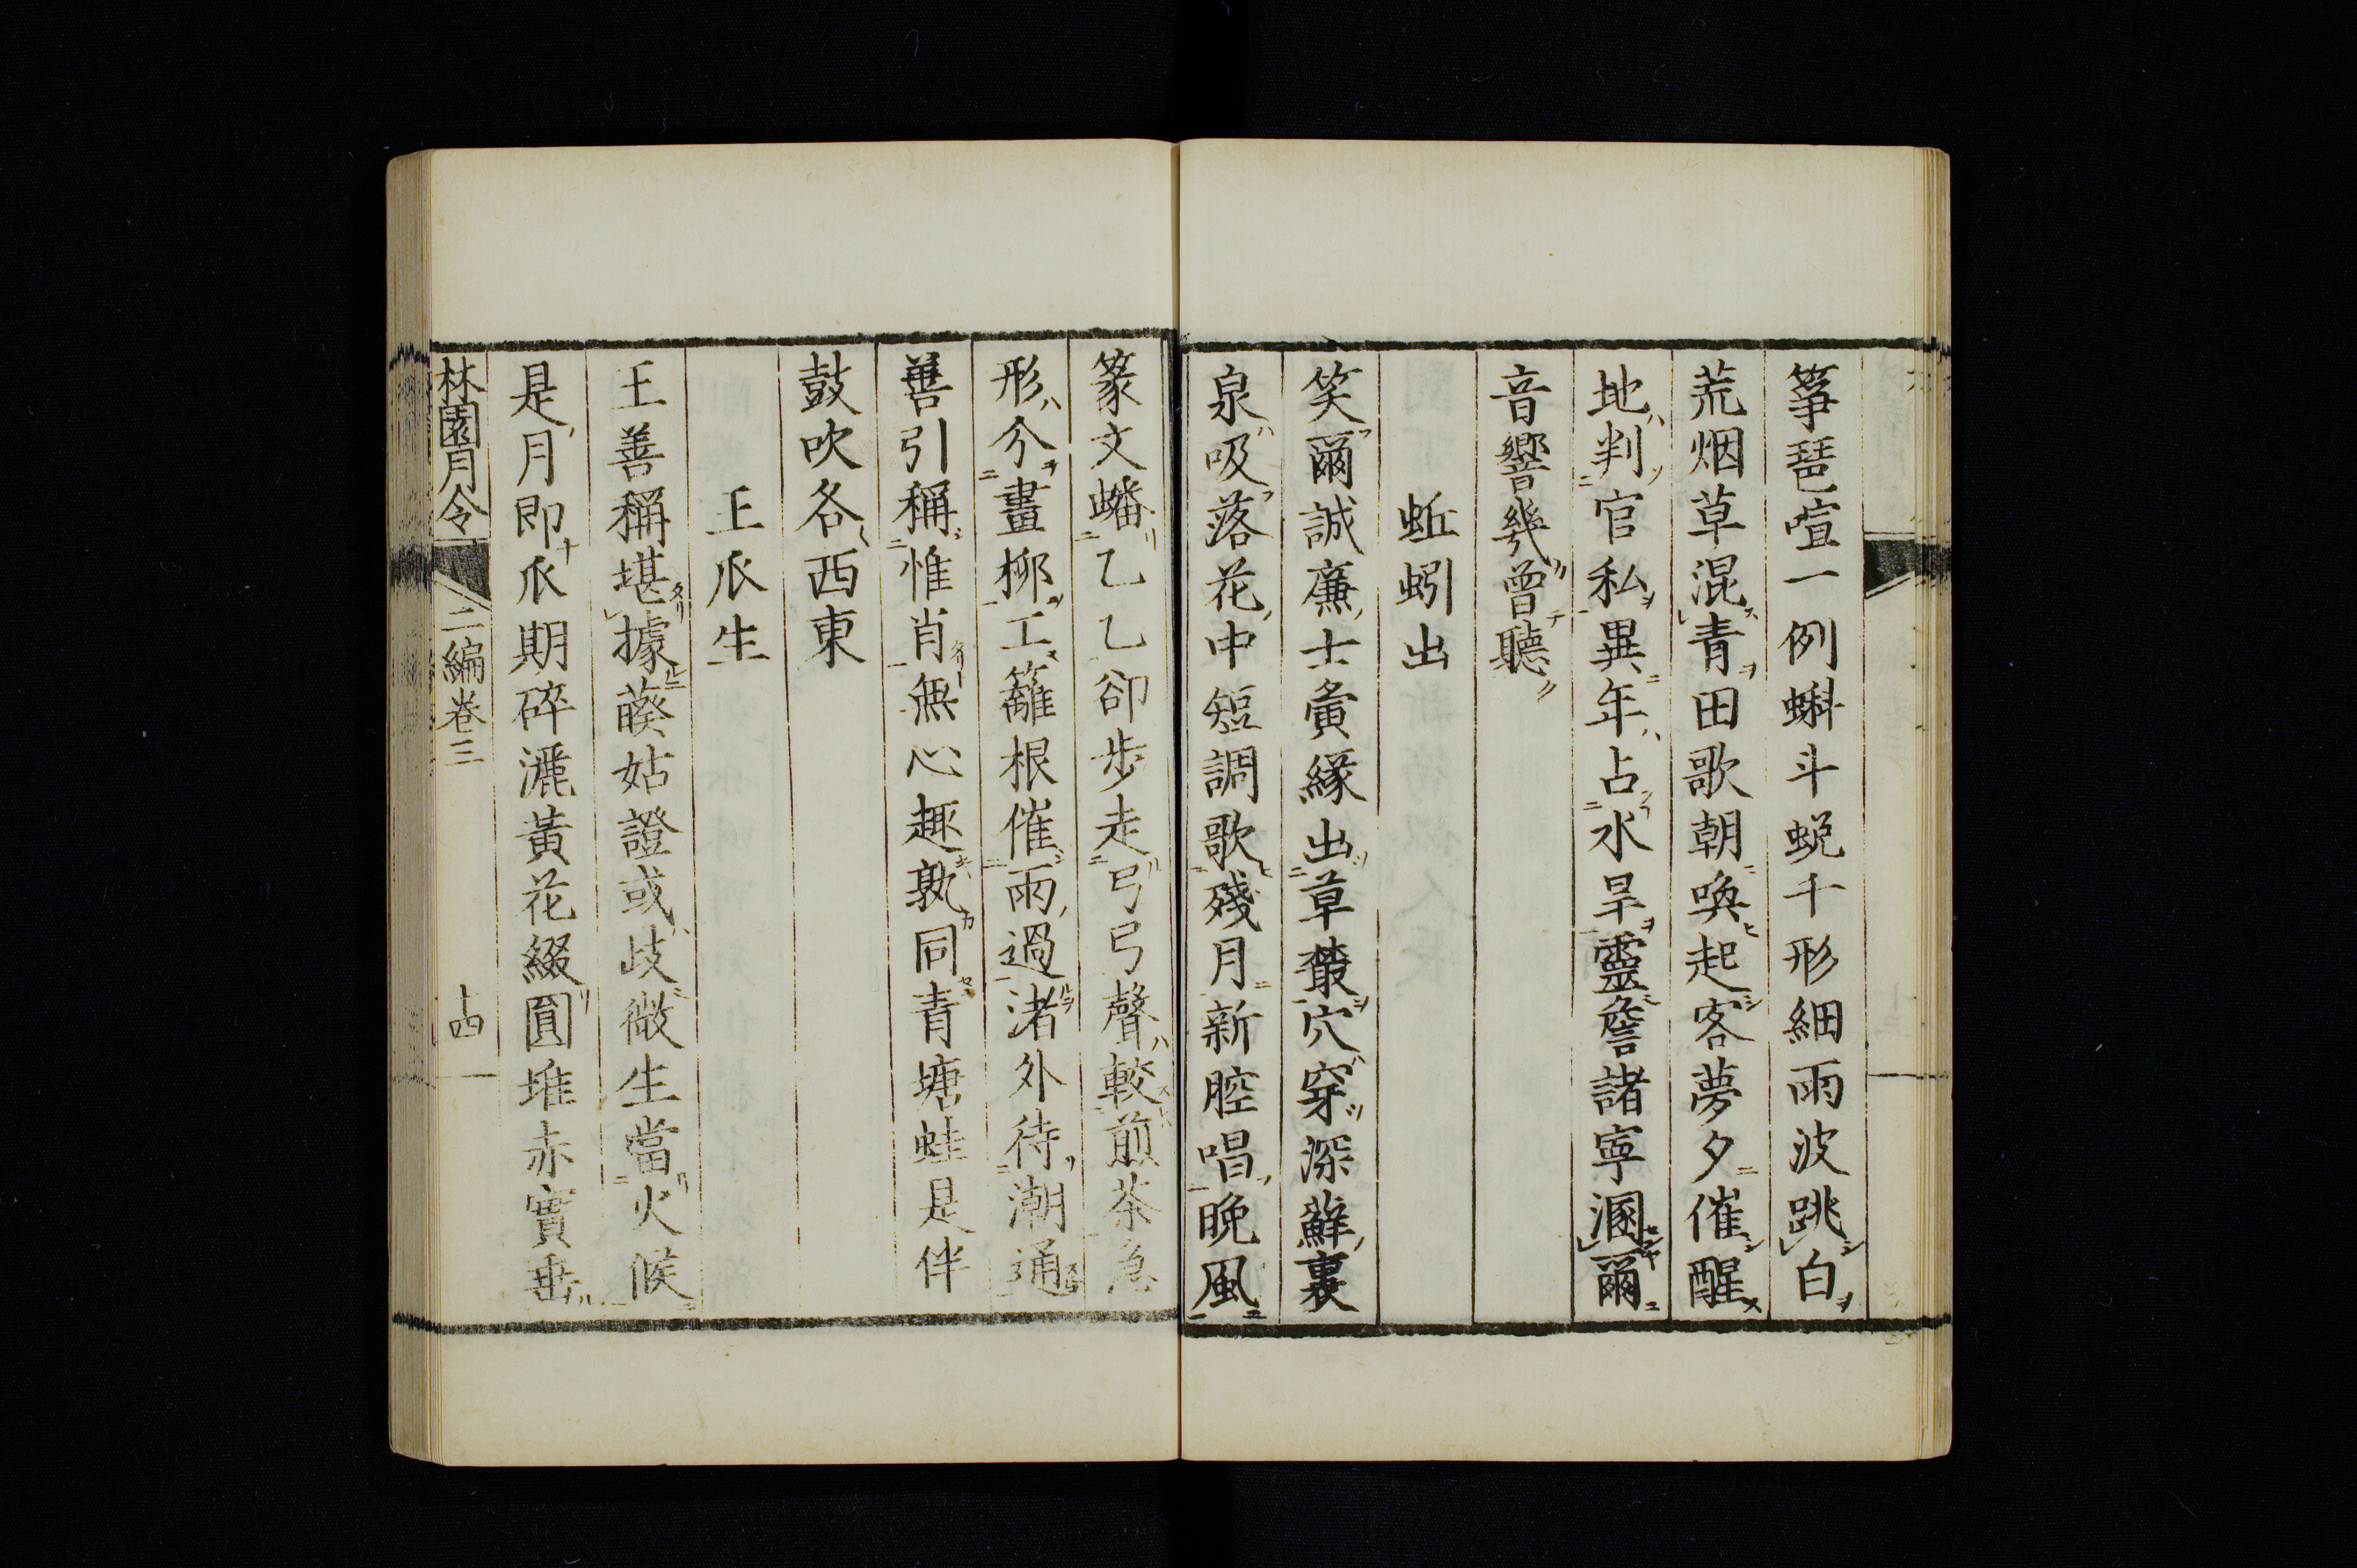 箏琶喧一例蝌斗蛻千形細雨波跳白
荒烟草混青田歌朝喚起客夢夕催醒
地判官私異年占水旱靈詹諸寧溷爾
音響幾曾聽
蚯蚓出
笑爾誠廉士夤緣出草叢穴穿深蘚裏
泉吸落花中短調歌殘月新腔唱晚風
篆文蟠乙乙卻步走弓弓聲較煎茶急
形分畫柳工籬根催雨過渚外待潮通
善引稱惟肖無心趣孰同青塘蛙是伴
鼓吹各西東
王瓜生
王善稱堪據藈姑證或歧微生當火候
是月即瓜期碎灑黃花綴圓堆赤實垂
林園月令 二編卷三 十四